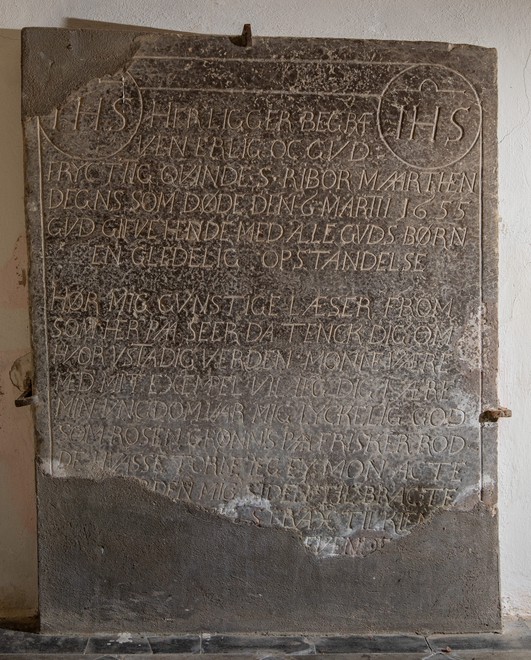 IHS HER LIGGER BEGRÆ IHS
VEN ERLIG OG GVD
FRYCTIIG QVINDE S. RIBOR MAARTHEN
DEGNS SOM DØDE DEN 6 MARTII 1655
GVD GIFVE HENDE MED ALLE GVDS BØRN
EN GLEDELIG OPSTANDELSE
HØR MIG GVNSTIGE LÆSER FROM
SOM HER PAA SEER DA TENCK DIG OM
VERDEN MONNE VÆRE
MED MIT EXEMPEL VIL IEG DIG LÆRE
MIN VNGDOM VAR MIG LYCKELIG GOD
SOM ROSEN GRØNNIS PAA FRISKER ROD
IEG EY MON ACTE
MIG SIDEN TILBRAGTE